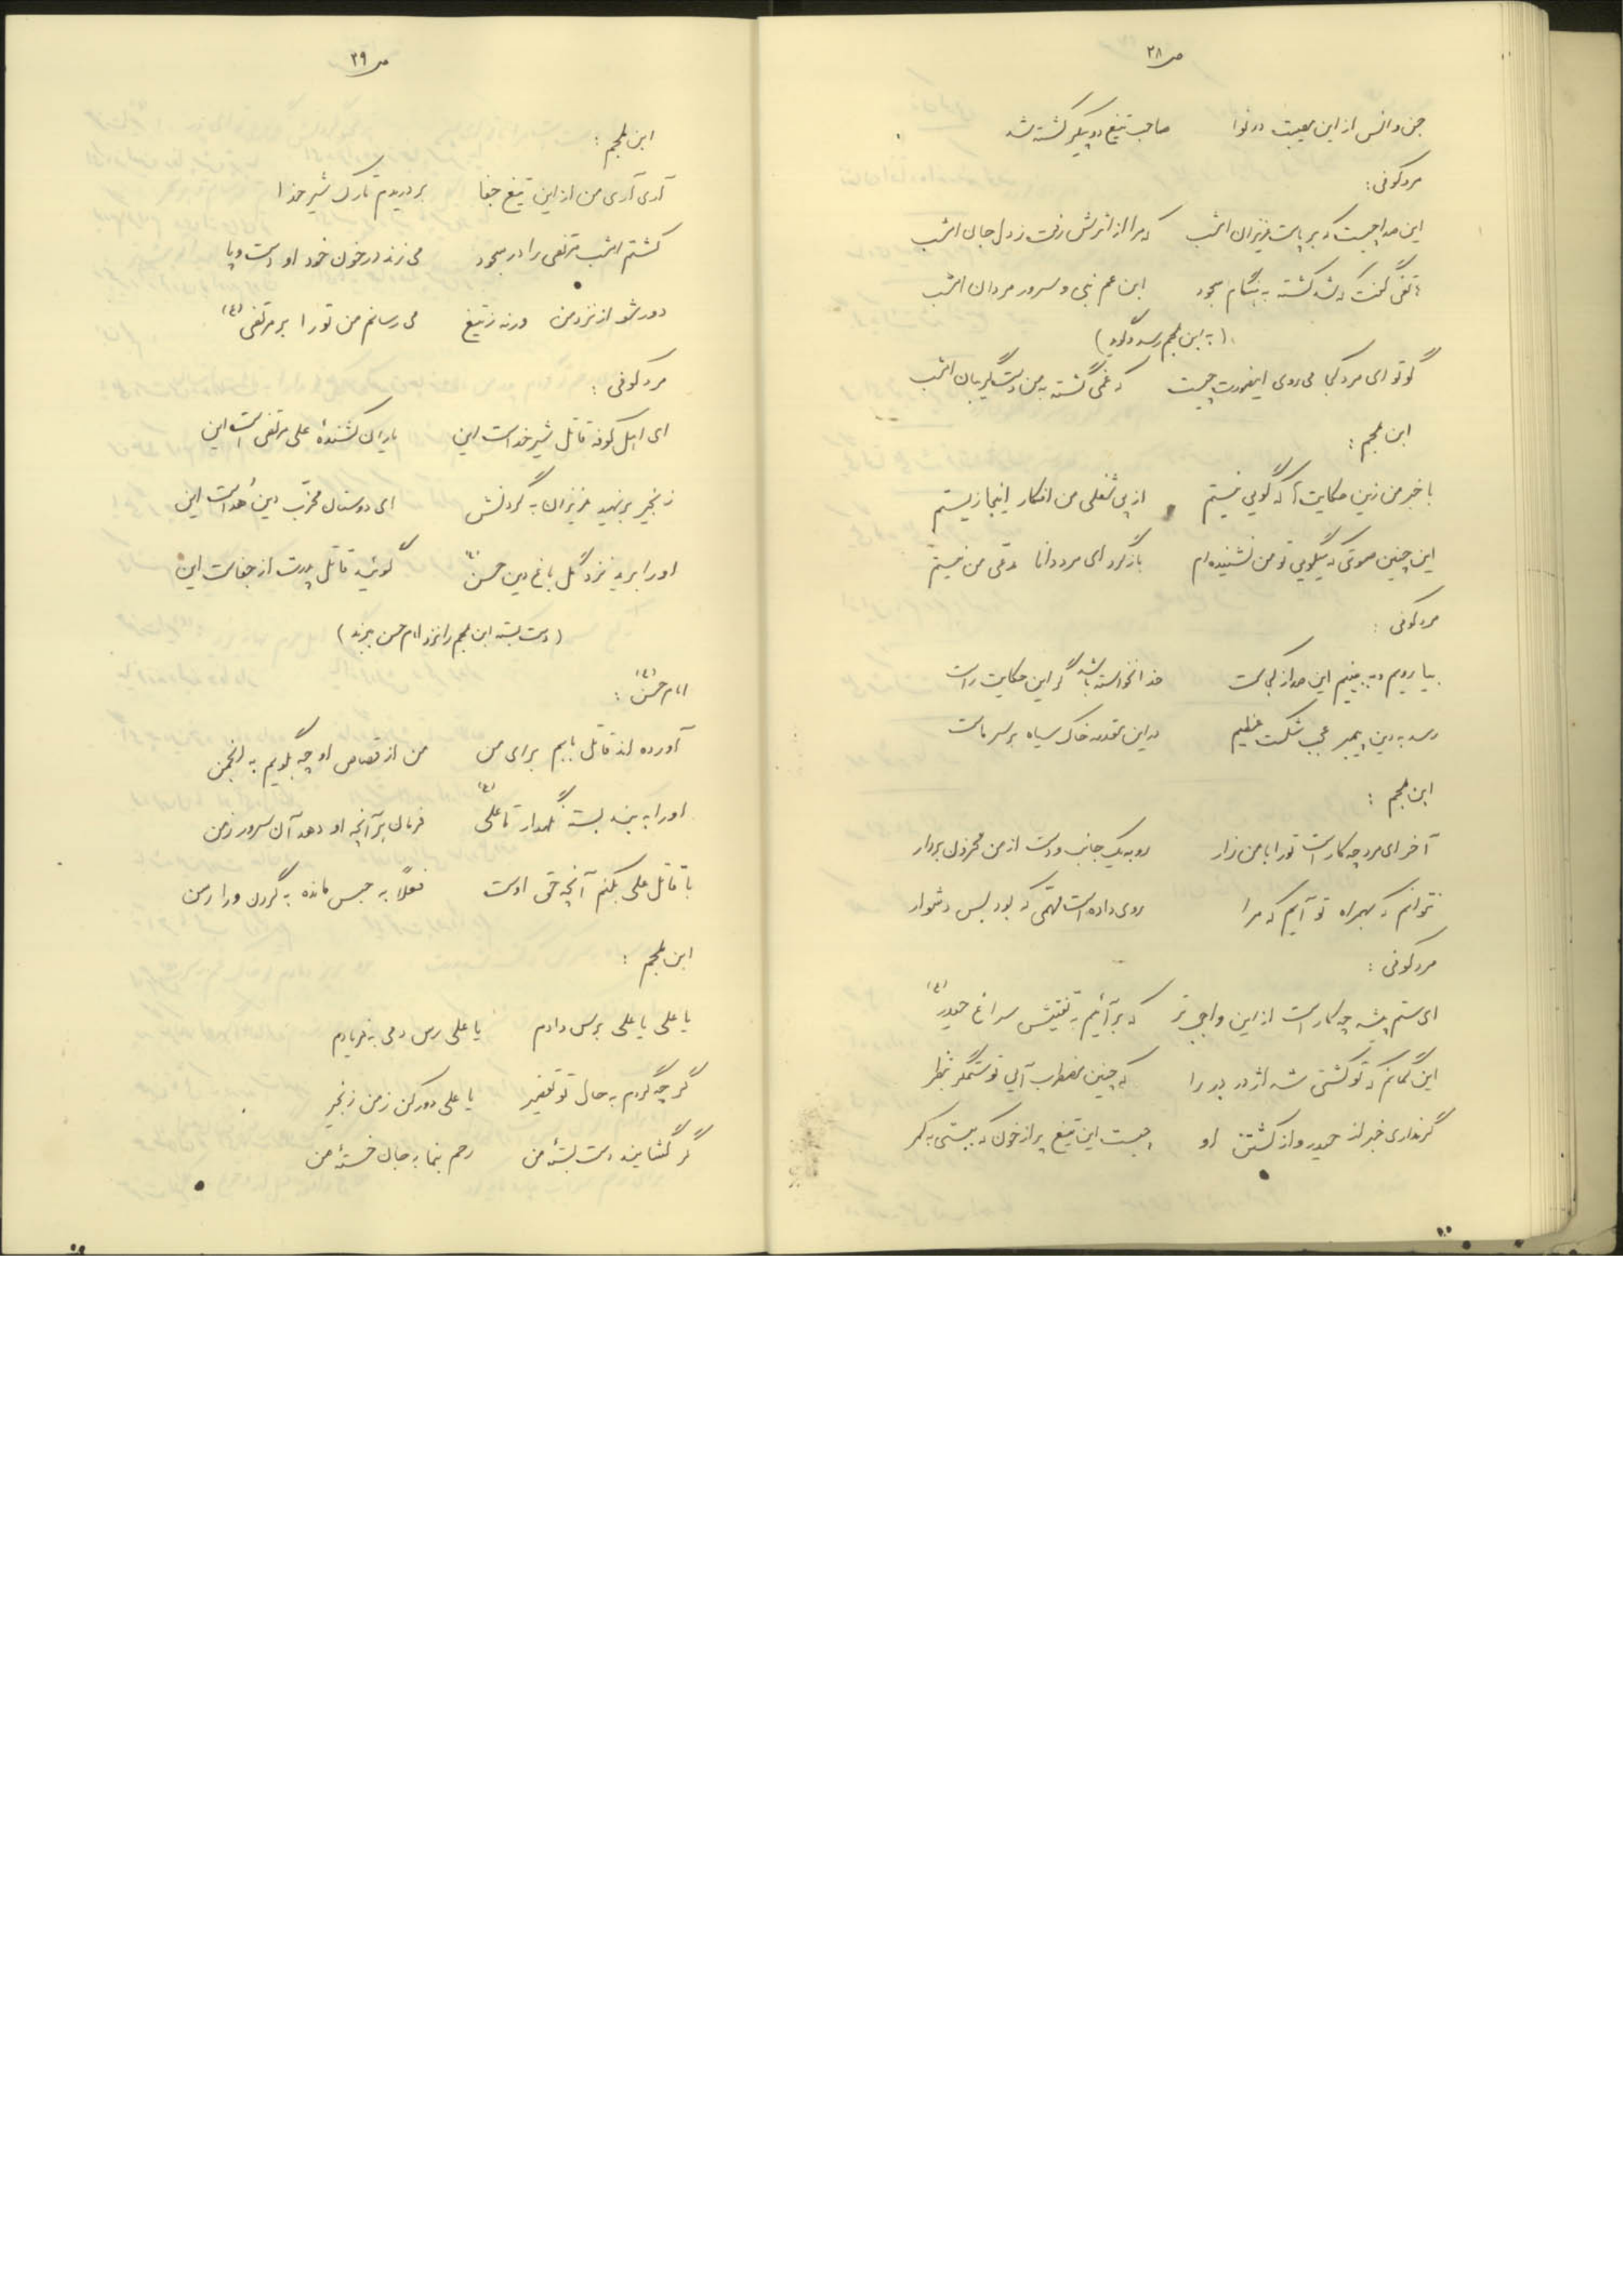 ص ۲۸
جن و انس از این مصیبت در نوا صاحب تیغ دو پیکر کشته شد
مرد کوفی :
این صدا چیست که بر پاست عزیزان امشب که مرا از اثرش رفت ز دل جان امشب
هاتفی گفت که شد کشته به هنگام سجود ابن عم نبی و سرور مردان امشب
( به ابن ملجم رسد و گوید )
گو تو ای مرد کجا می روی اینصورت چیست که غمی گشته به من دست گریبان امشب
ابن ملجم :
با خبر من زین حکایت که گویی نیستم از پی شغلی من افکار اینجا زیستم
این چنین صوتی که میگویی تو من نشنیده ام باز گرد ای مرد دانا من نیستم
مرد کوفی :
بیا رویم و ببینیم این صدا ز کجاست خدا نخواسته باشد گر این حکایت راست
رسد به دین پیمبر عجب شکست عظیم در این مقدمه خاک سیاه بر سر ماست
ابن ملجم :
آخر ای مرد چه کار است تو را با من زار رو به یک جانب و دست از من محزون بردار
نتوانم که بهمراه تو آیم که مرا روی داده است مهمی که بود بس دشوار
مرد کوفی :
ای ستم پیشه چه کار است از این واجب تر که برآئیم به تفتیش سراغ حیدر (ع)
این گمانم که تو کشتی شه اژدر در را که چنین مضطرب آیی تو ستمگر بنظر
گر نداری خبر از حیدر و از کشتن او چیست این تیغ پر از خون که ببستی به کمر
ص ۲۹
ابن ملجم :
آری آری من از این تیغ جفا بر دریدم تارک شیر خدا
کشتم امشب مرتضی را در سجود می زند در خون خود او دست و پا
دور شو از نزد من ورنه ز تیغ می رسانم من تو را بر مرتضی (ع)
مرد کوفی :
ای اهل کوفه قاتل شیر خداست این یاران کشندهٔ علی مرتضی است این
زنجیر بر نهید عزیزان به گردنش ای دوستان مخرب دین خداست این
او را برید نزد گل باغ دین حسن (ع) گوئید قاتل پدرت از جفاست این
( دست بسته ابن ملجم را نزد امام حسن ببرند )
امام حسن (ع) :
آورده اند قاتل بابم برای من من از قصاص او چه بگویم به انجمن
او را به بند بسته نگهدار تا علی (ع) فرمان بر آنچه او دهد آن سرور زمن
با قاتل علی بکنم آنچه حق اوست فعلاً به حبس مانده به گردن ورا رسن
ابن ملجم :
یا علی یا علی برس دادم یا علی رس دمی به فریادم
گر چه کردم به حال تو تقصیر یا علی دور کن ز من زنجیر
گر گشایند دست بستهٔ من رحم بنما به حال خستهٔ من